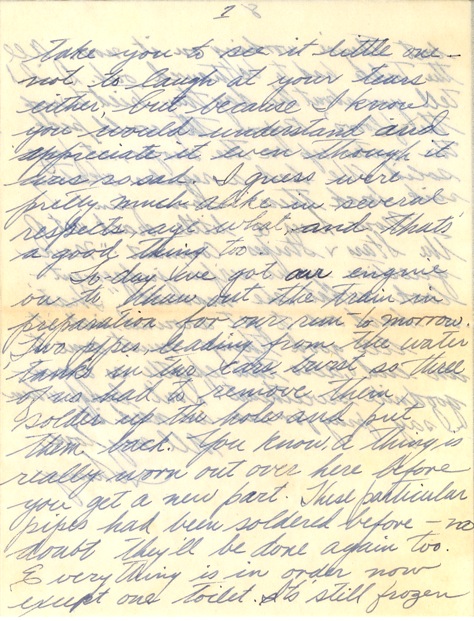 2
take you to see it little one -
not to laugh at your tears
either, but because I know
you would understand and
appreciate it even though it
was so sad. I guess we're
pretty much alike in several
respects and that's
a good thing to.
To-day I've got our engine
on to thaw out the train in
preparation for our run to-morrow.
Two pipes, leading from the water
tanks in two cars burst so three
of us had to remove them,
solder up the holes and put
them back. You know, a thing is
really worn out over here before
you get a new part. These particular
pipes had been soldered before - no
doubt they'll be done again too.
Everything is in order now
except one toilet. It's still frozen